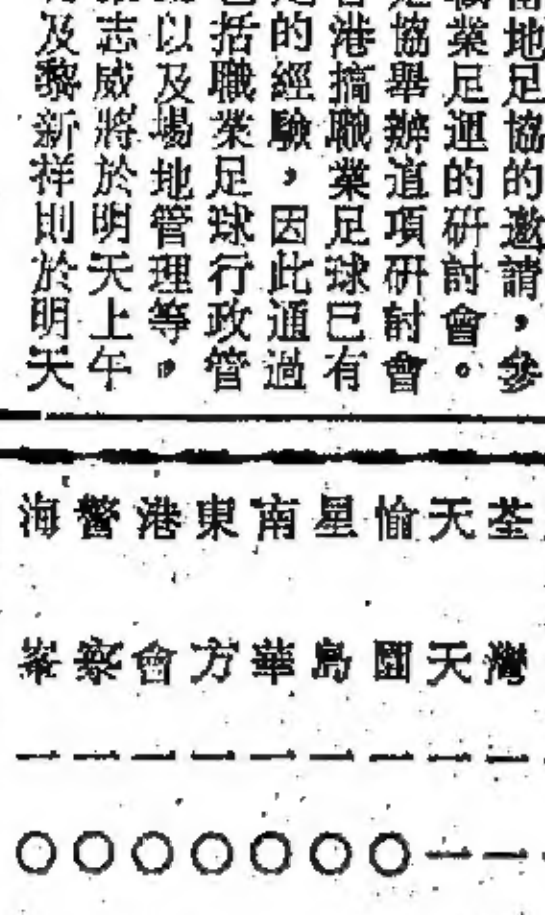 當地足協的邀請，參
職業足運的研討會。
足協舉辦這項研討會
香港搞職業足球已有
的經驗，因此通過
包括職業足球行政管
以及場地管理等。
志威將於明天上午
及黎新祥則於明天
荃灣一一
天天一一
愉園一〇
星島一〇
南華一〇
東方一〇
港會一〇
警察一〇
海峯一〇